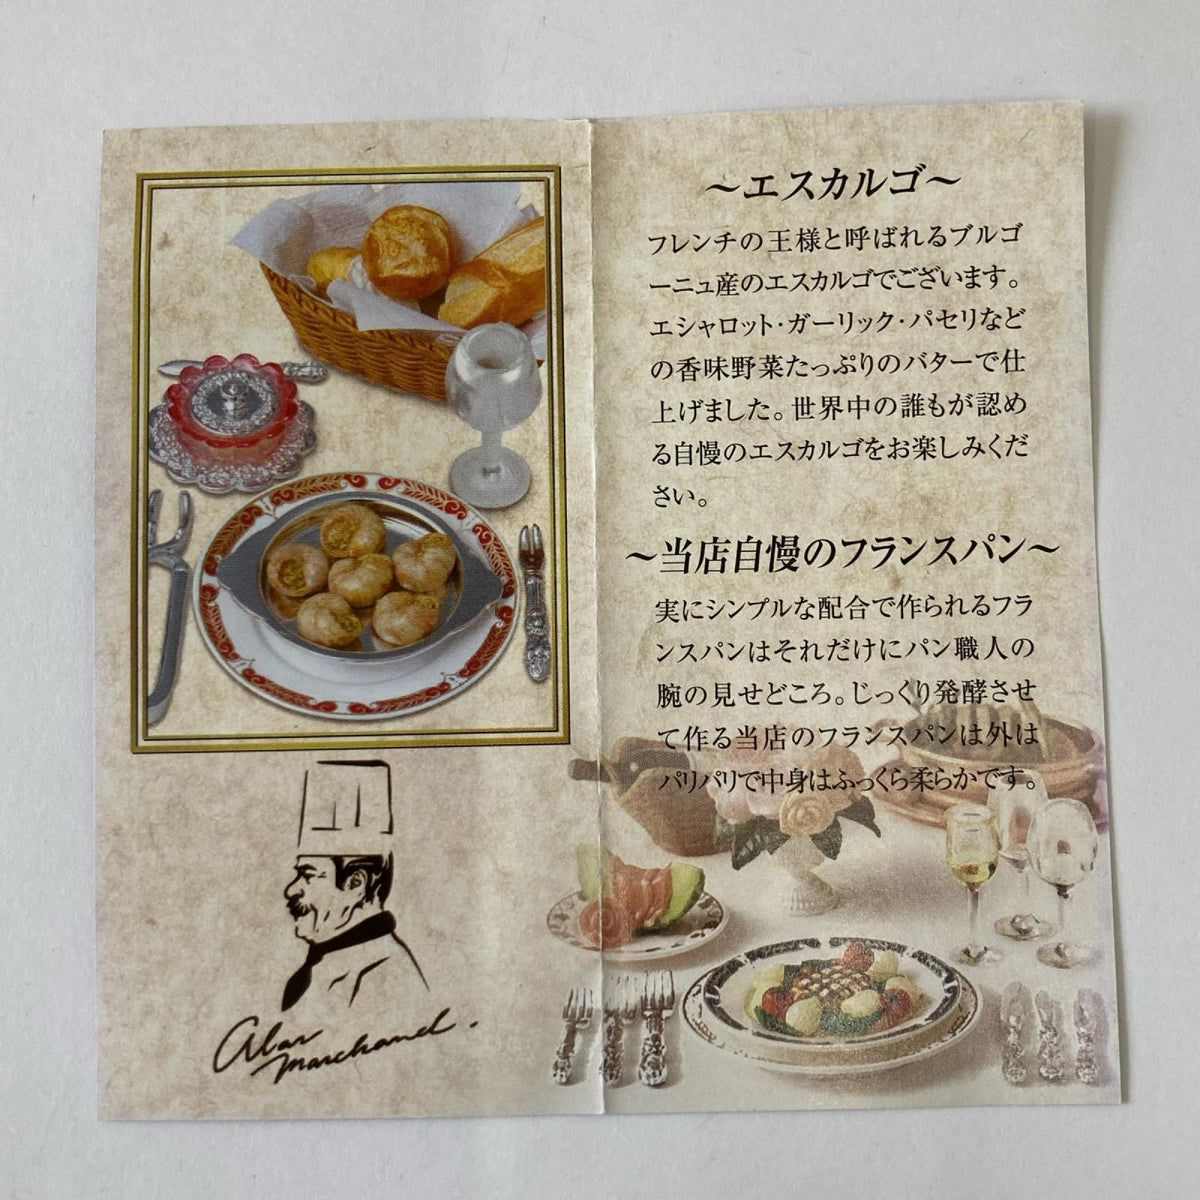 ～エスカルゴ～
フレンチの王様と呼ばれるブルゴ
ーニュ産のエスカルゴでございます。
エシャロット・ガーリック・パセリなど
の香味野菜たっぷりのバターで仕
上げました。世界中の誰もが認め
る自慢のエスカルゴをお楽しみくだ
さい。
～当店自慢のフランスパン～
実にシンプルな配合で作られるフラ
ンスパンはそれだけにパン職人の
腕の見せどころ。じっくり発酵させ
て作る当店のフランスパンは外は
パリパリで中身はふっくら柔らかです。
Alan
Marchand.